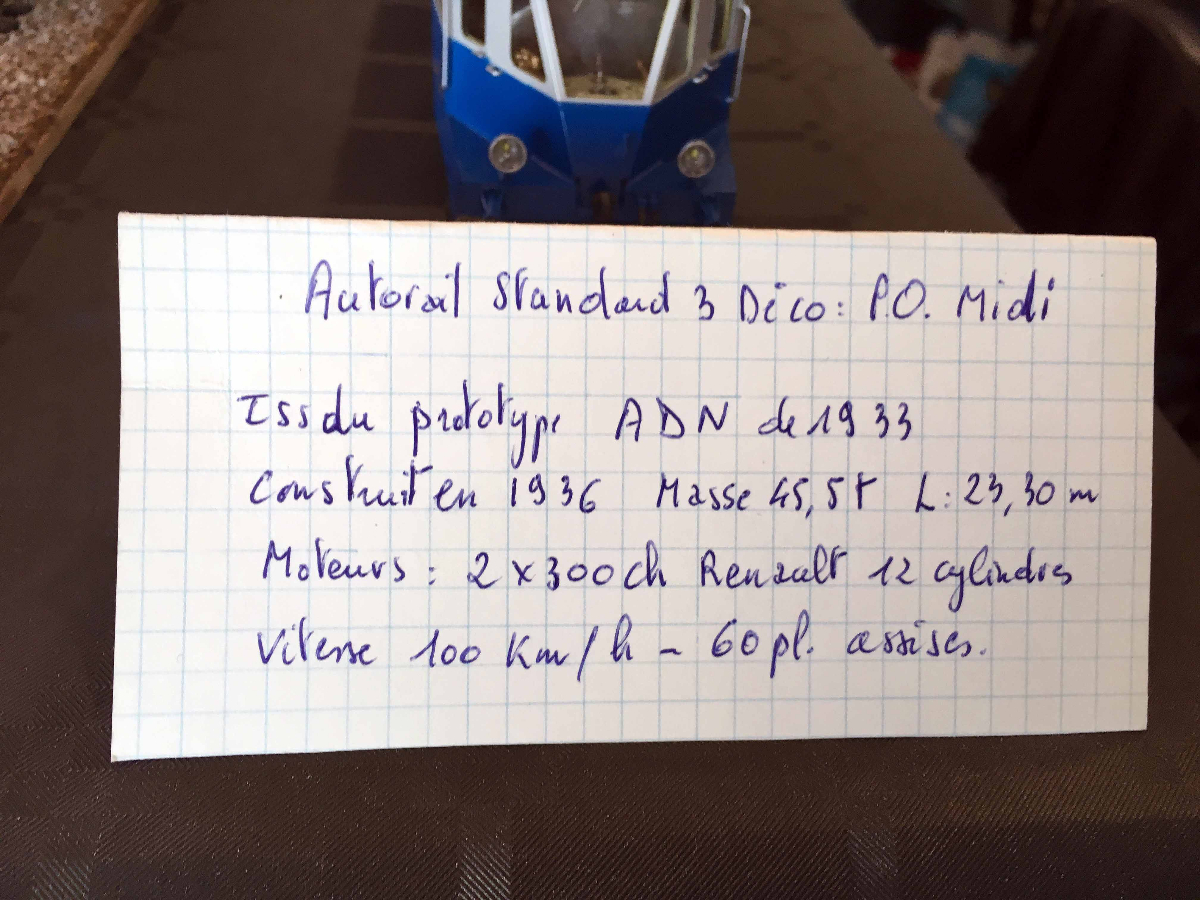 Autorail Standard 3 Déco: P.O. Midi
Issdu prototype ADN de 1933
Construit en 1936 Masse 45,5t L: 23,30 m
Moteurs: 2 x 300 ch Renault 12 cylindres
Vitesse 100 Km/h - 60 pl. assises.